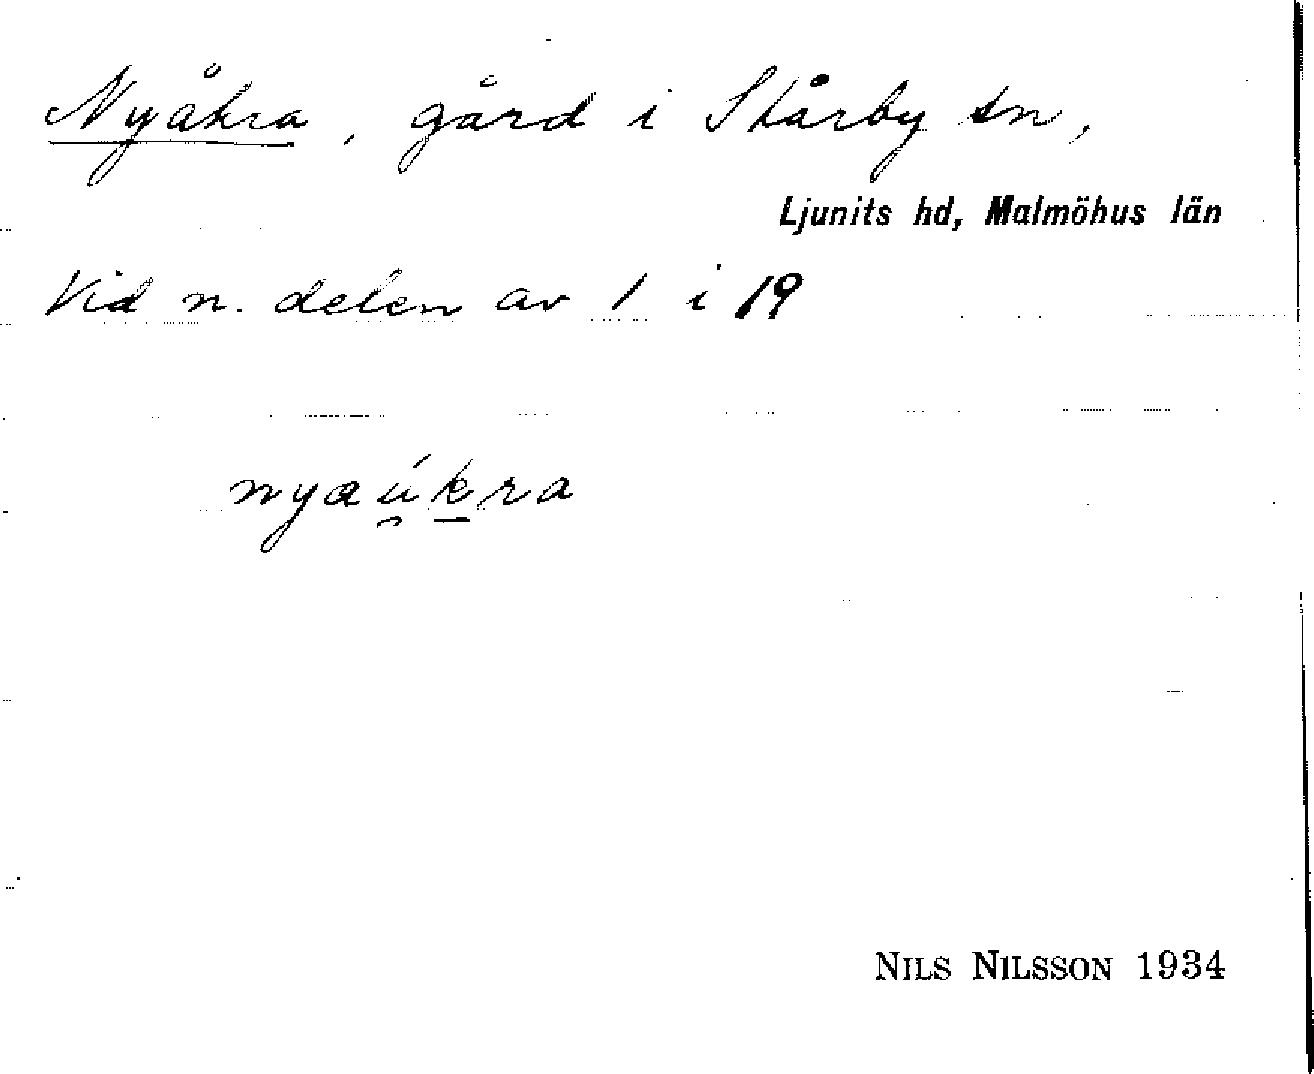 Nyåkra, gård i Skårby sn,
Ljunits hd, Malmöhus län
Vid n. delen av 1 i 19
nyaú̯k̲ra
NILS NILSSON 1934